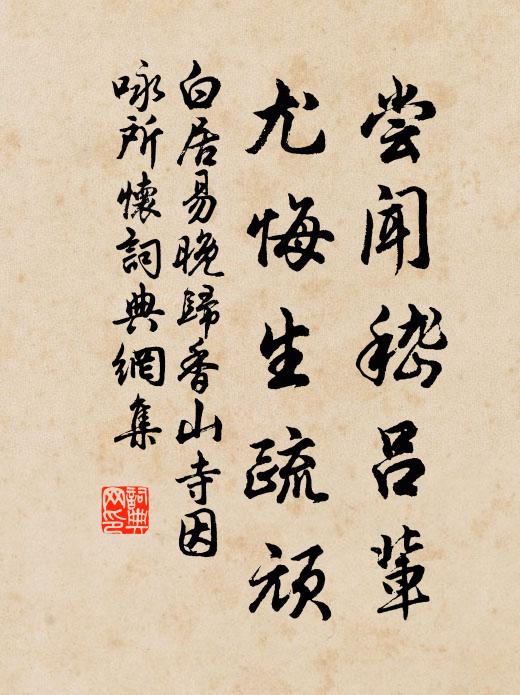 尝闻嵇吕辈
尤悔生疏顽
白居易晚歸香山寺因
咏所懷詞典網集
詞典
网印